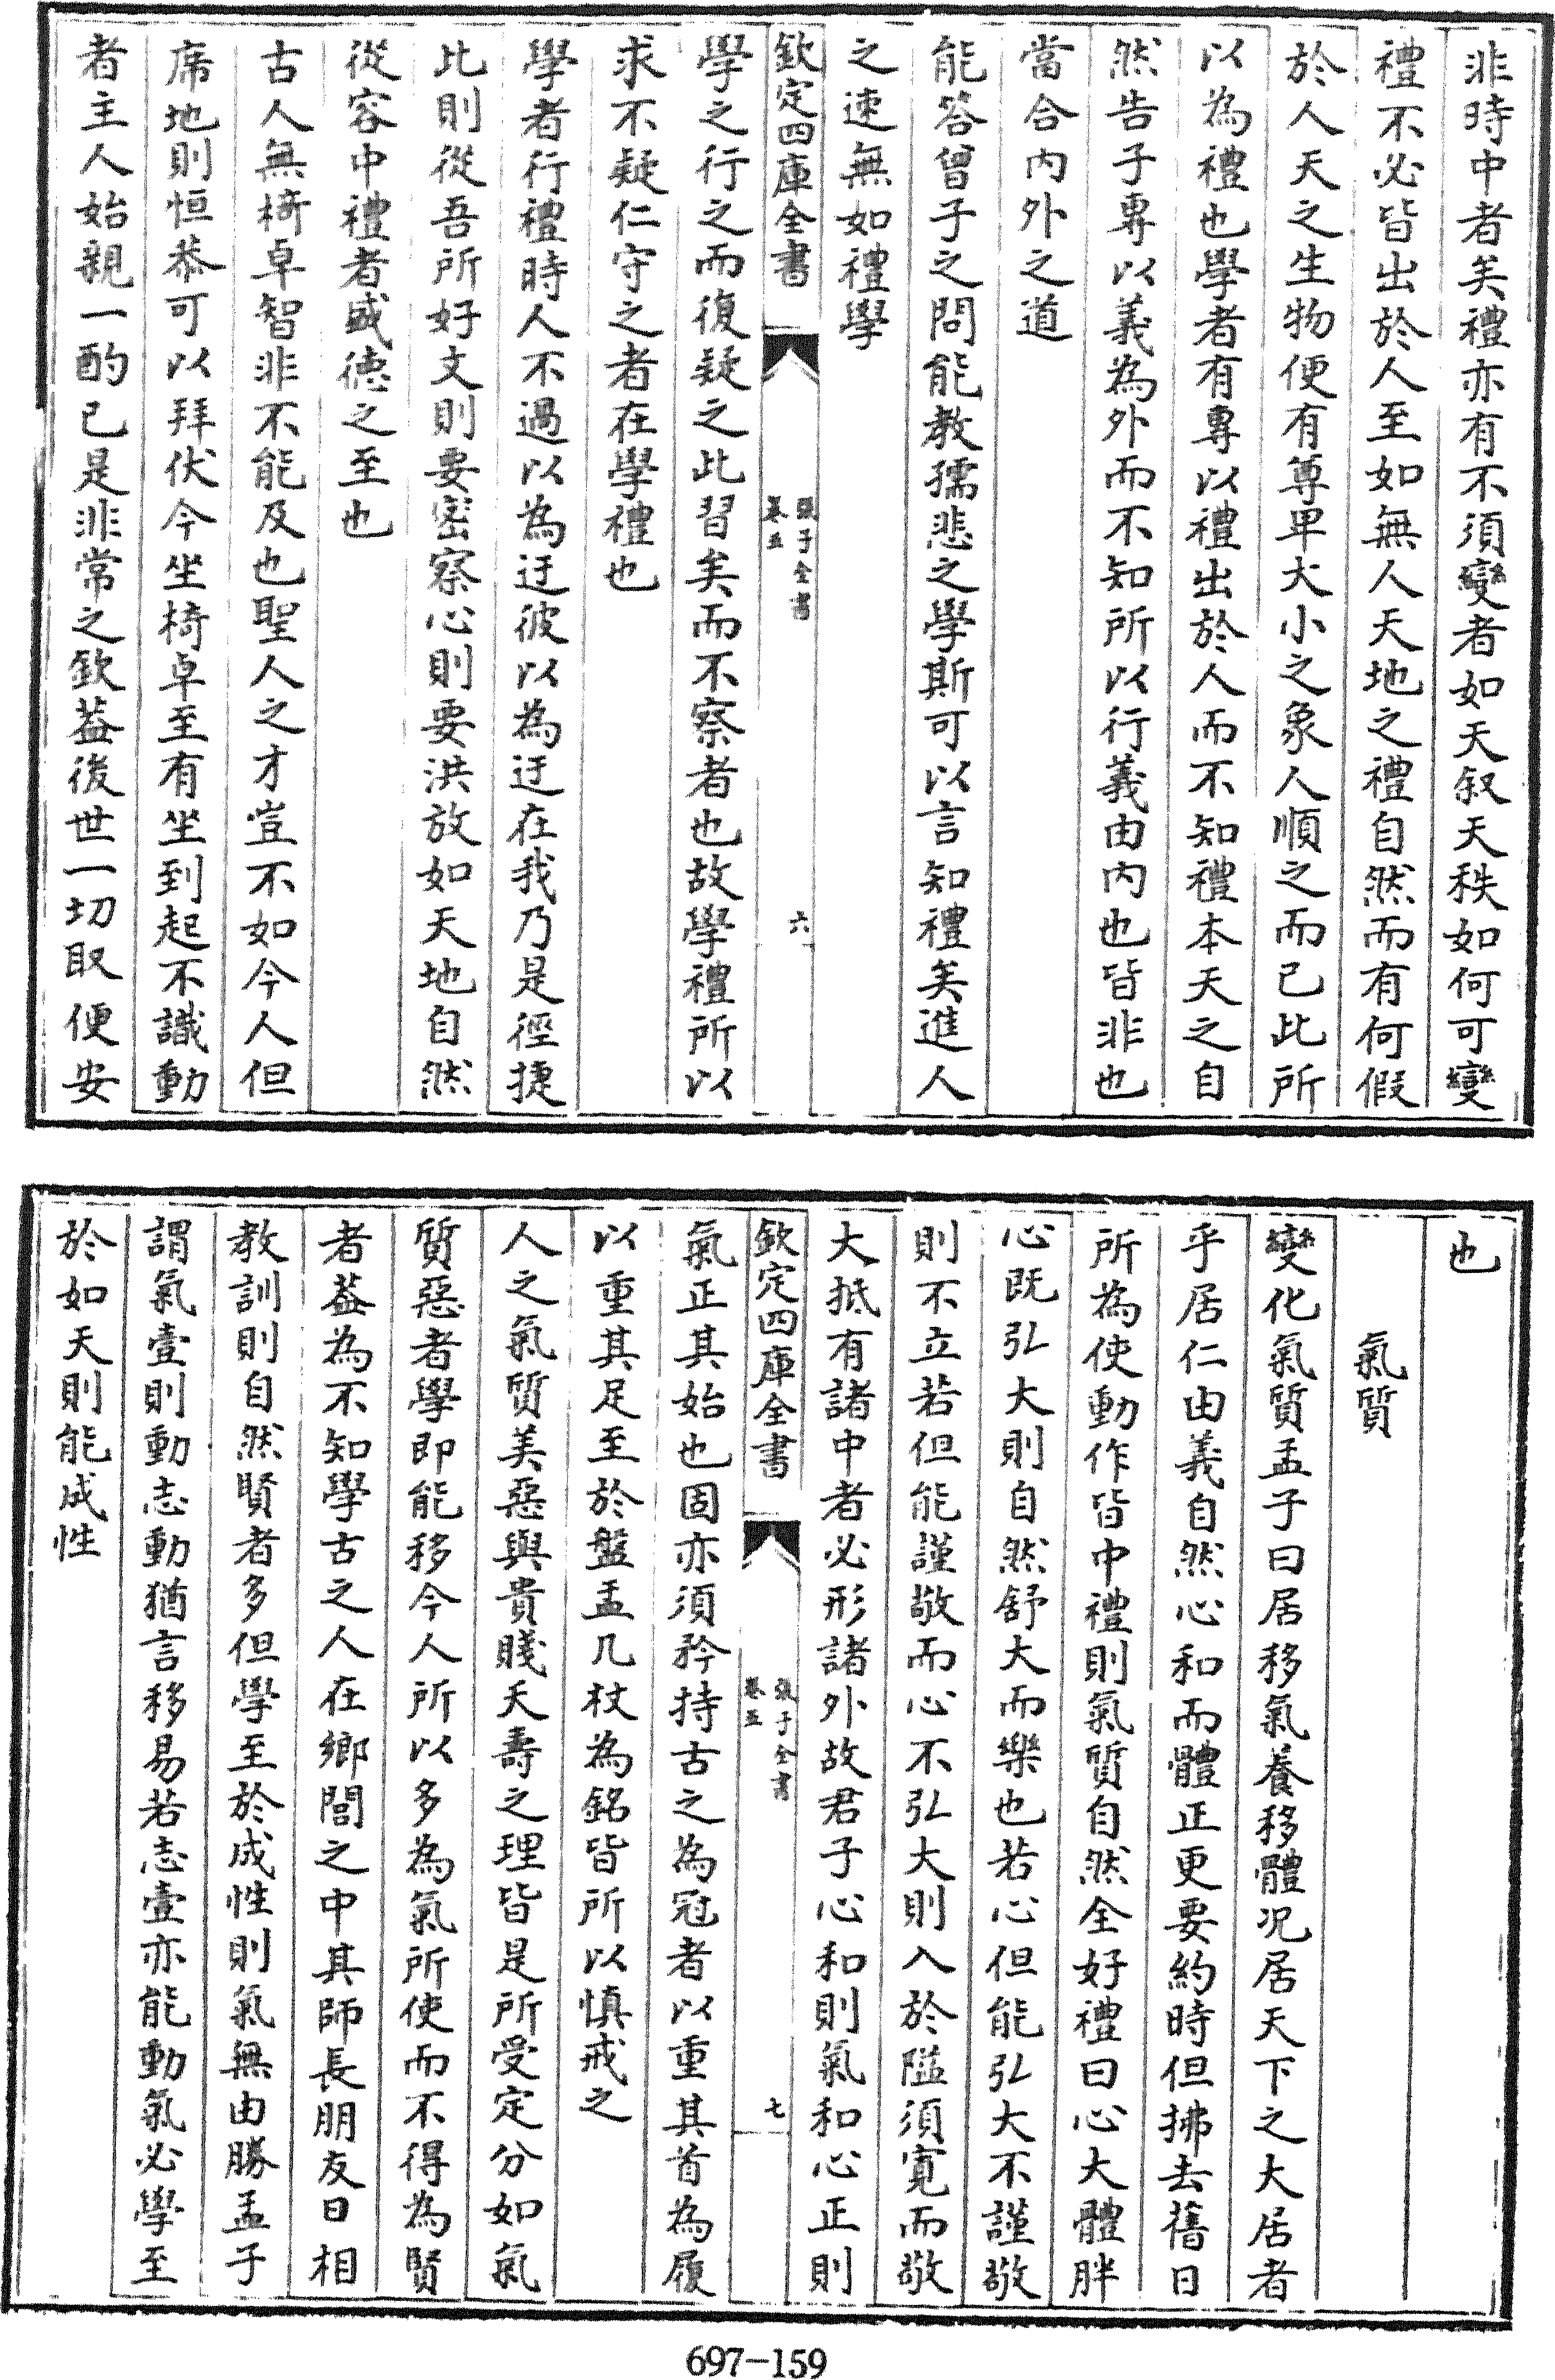 非時中者矣禮亦有不須變者如天叙天秩如何可變
禮不必皆出於人至如無人天地之禮自然而有何假
於人天之生物便有尊卑大小之象人順之而已此所
以為禮也學者有專以禮出於人而不知禮本天之自
然告子專以義為外而不知所以行義由内也皆非也
當合内外之道
能答曾子之問能教孺悲之學斯可以言知禮矣進人
之速無如禮學
欽定四庫全書
張子全書
卷五
六
學之行之而復疑之此習矣而不察者也故學禮所以
求不疑仁守之者在學禮也
學者行禮時人不過以為迂彼以為迂在我乃是徑捷
此則從吾所好文則要密察心則要洪放如天地自然
從容中禮者盛德之至也
古人無椅卓智非不能及也聖人之才豈不如今人但
席地則恒恭可以拜伏今坐椅卓至有坐到起不識動
者主人始親一酌已是非常之欽蓋後世一切取便安
也
氣質
變化氣質孟子曰居移氣養移體况居天下之大居者
乎居仁由義自然心和而體正更要約時但拂去舊日
所為使動作皆中禮則氣質自然全好禮曰心大體胖
心既弘大則自然舒大而樂也若心但能弘大不謹敬
則不立若但能謹敬而心不弘大則入於隘須寛而敬
大抵有諸中者必形諸外故君子心和則氣和心正則
欽定四庫全書
張子全書
卷五
七
氣正其始也固亦須矜持古之為冠者以重其首為履
以重其足至於盤盂几杖為銘皆所以慎戒之
人之氣質美惡與貴賤夭壽之理皆是所受定分如氣
質惡者學即能移今人所以多為氣所使而不得為賢
者蓋為不知學古之人在鄉閭之中其師長朋友日相
教訓則自然賢者多但學至於成性則氣無由勝孟子
謂氣壹則動志動猶言移易若志壹亦能動氣必學至
於如天則能成性
697-159